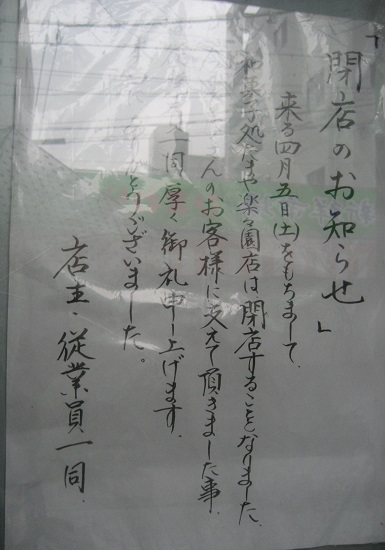 「閉店のお知らせ」
来る四月五日(土)をもちまして、
和菓子処 や楽々園店は閉店することとなりました。
さんのお客様に支えて頂きました事、
一同厚く御礼申し上げます。
ありがとうございました。
店主・従業員一同.